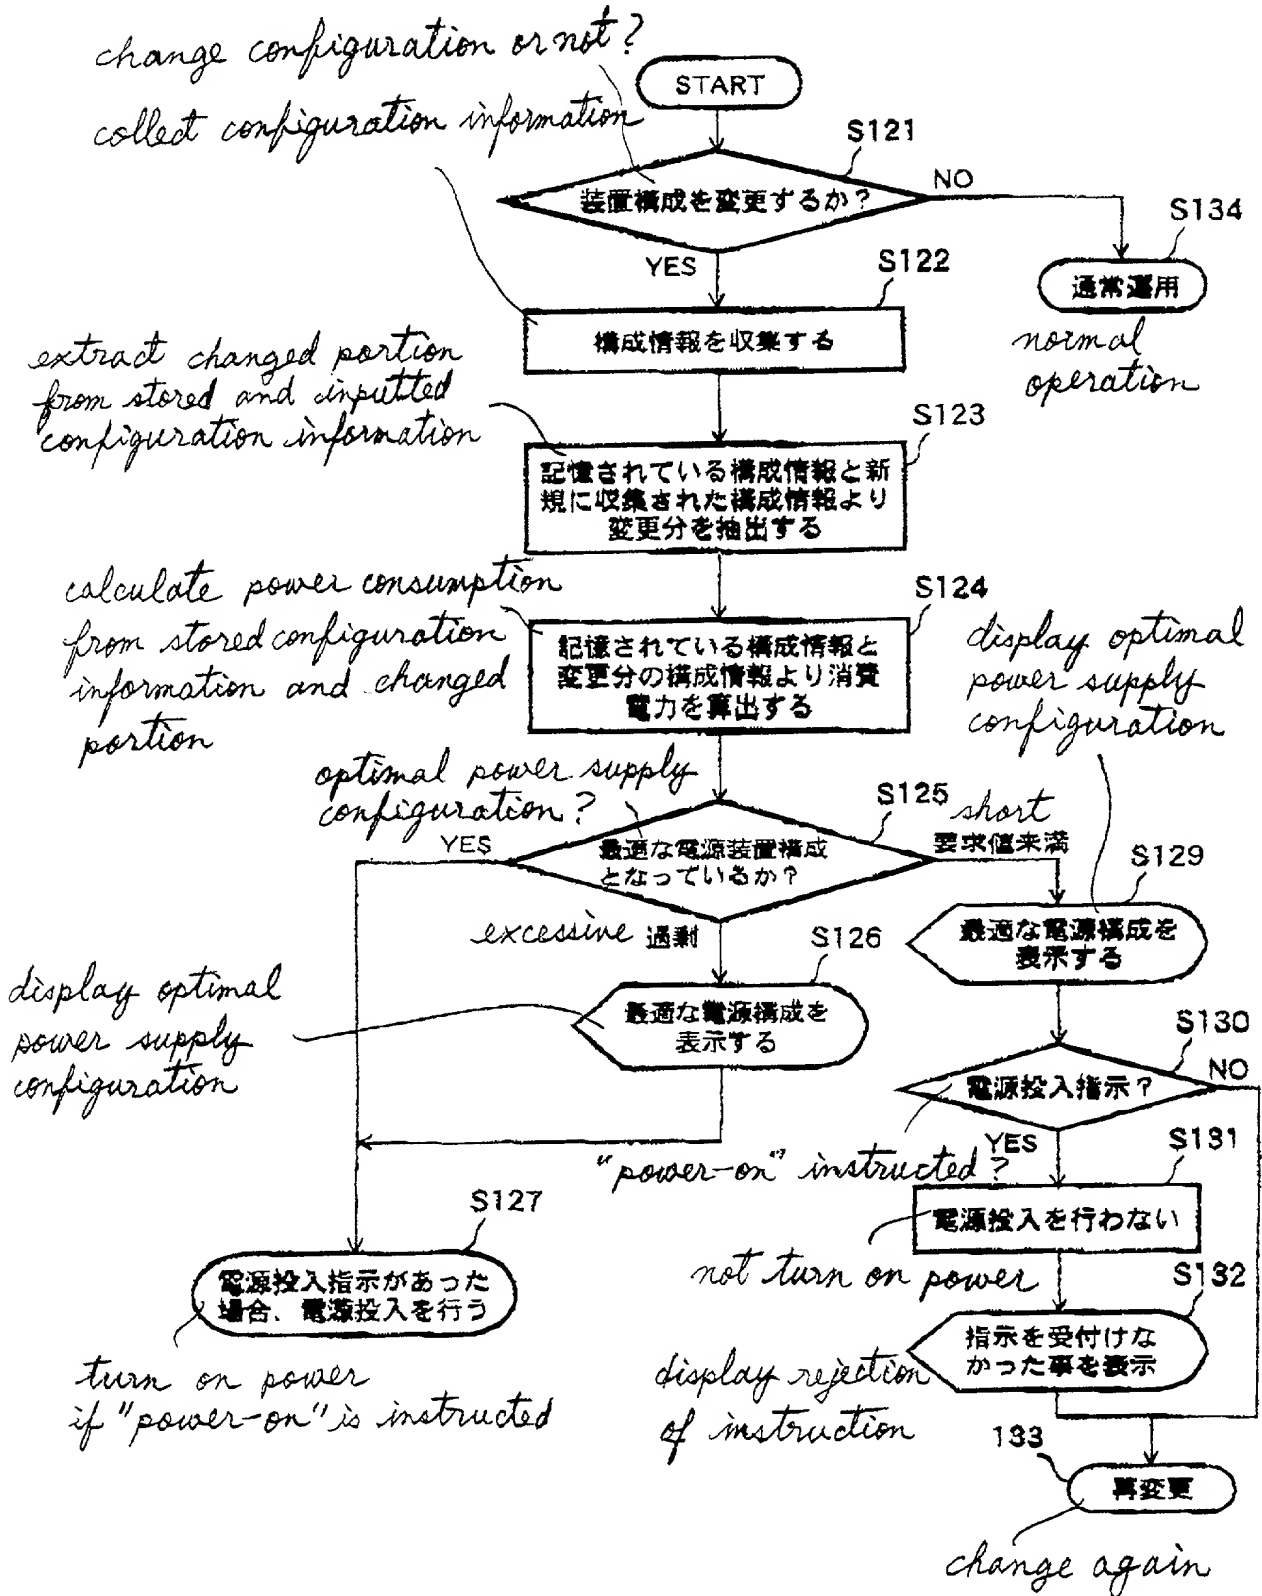 change configuration or not?
START
collect configuration information
S121
装置構成を変更するか？
NO
S134
通常運用
normal
operation
YES
S122
構成情報を収集する
extract changed portion
from stored and inputted
configuration information
S123
記憶されている構成情報と新
規に収集された構成情報より
変更分を抽出する
calculate power consumption
from stored configuration
information and changed
portion
S124
記憶されている構成情報と
変更分の構成情報より消費
電力を算出する
display optimal
power supply
configuration
optimal power supply
configuration?
S125
short
要求値未満
YES
最適な電源装置構成
となっているか？
S129
最適な電源構成を
表示する
excessive 過剰
S126
最適な電源構成を
表示する
display optimal
power supply
configuration
S130
NO
電源投入指示？
YES
"power-on" instructed?
S131
電源投入を行わない
not turn on power
S127
電源投入指示があった
場合、電源投入を行う
turn on power
if "power-on" is instructed
S132
指示を受付けな
かった事を表示
display rejection
of instruction
133
再変更
change again